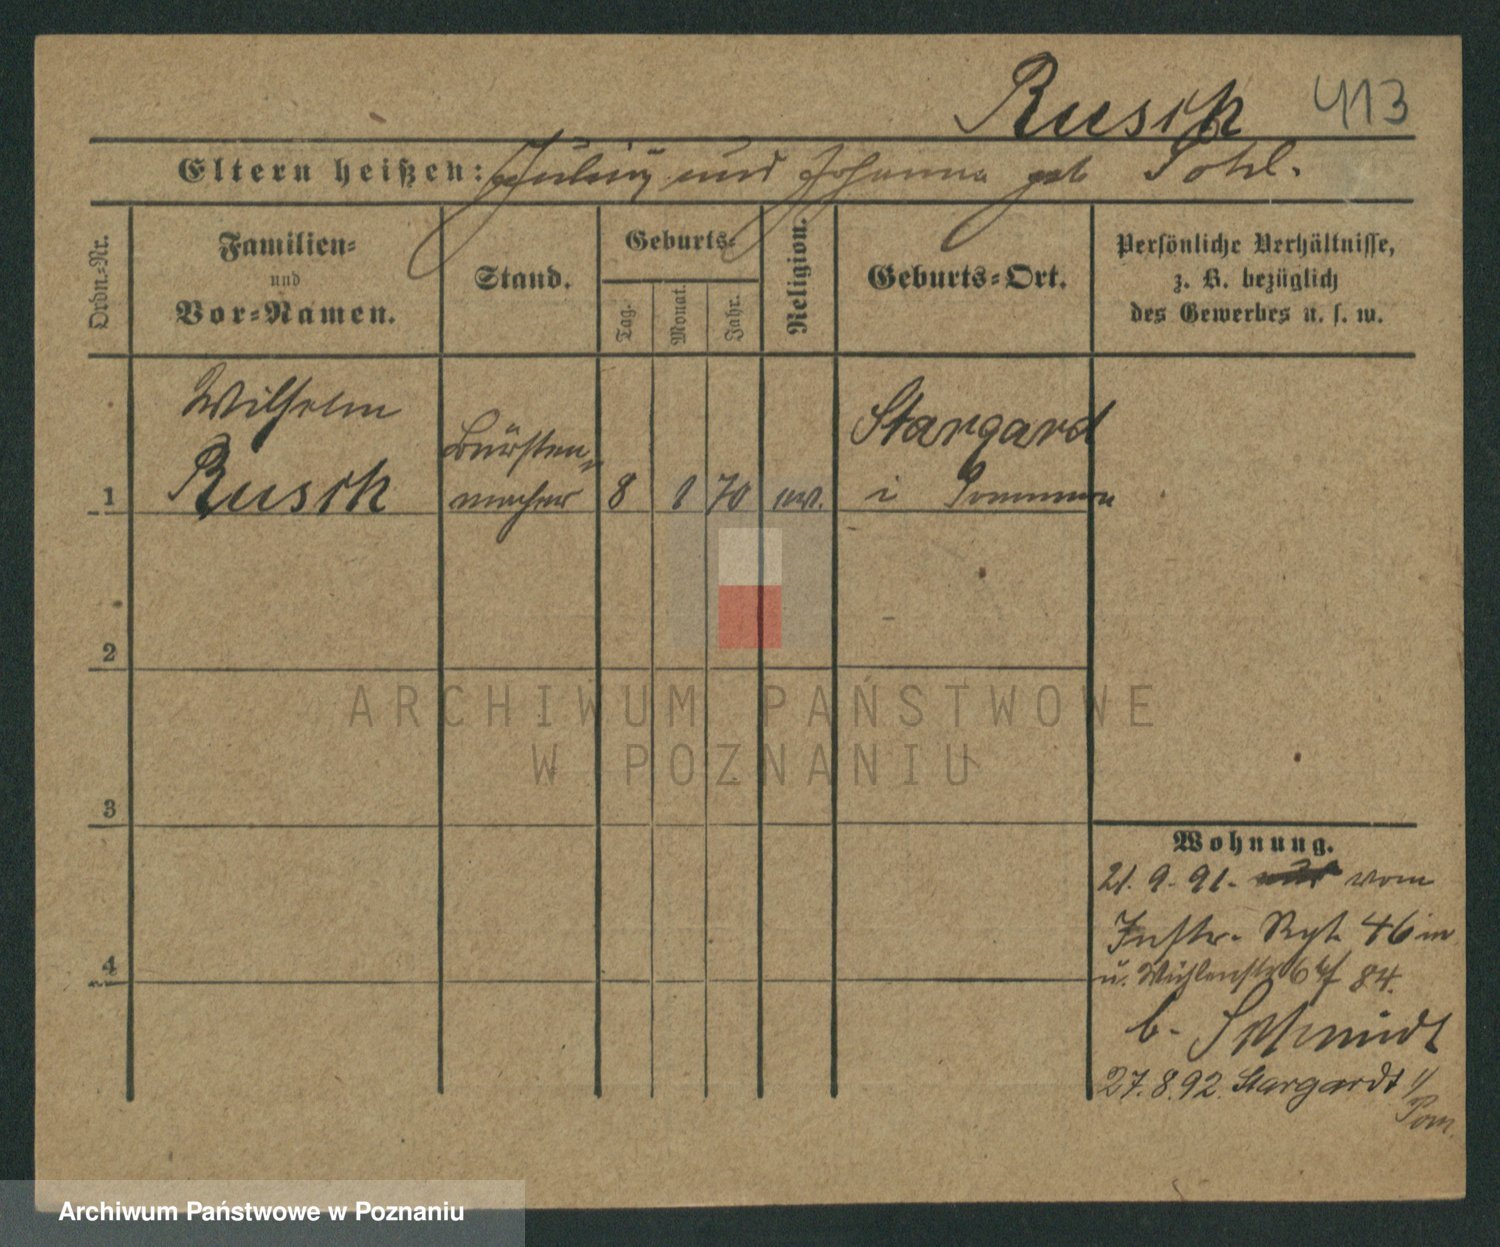 Rusch 413
Eltern heißen: Julius und Johanna geb Pohl.
Ordn.-Nr.
Familien-
und
Vor-Namen.
Stand.
Geburts-
Tag.
Monat.
Jahr.
Religion.
Geburts-Ort.
Persönliche Verhältnisse,
z. B. bezüglich
des Gewerbes u. s. w.
Wilhelm
Rusch
Bürsten-
macher
1 8 1 70 ev.
Stargard
i Pommern
2
3
4
ARCHIWUM PAŃSTWOWE
W POZNANIU
Wohnung.
21. 9. 91. vom
Inftr. Rgt. 46 in
84.
b. Schmidt
27. 8. 92. Stargardt i/
Pom.
Archiwum Państwowe w Poznaniu